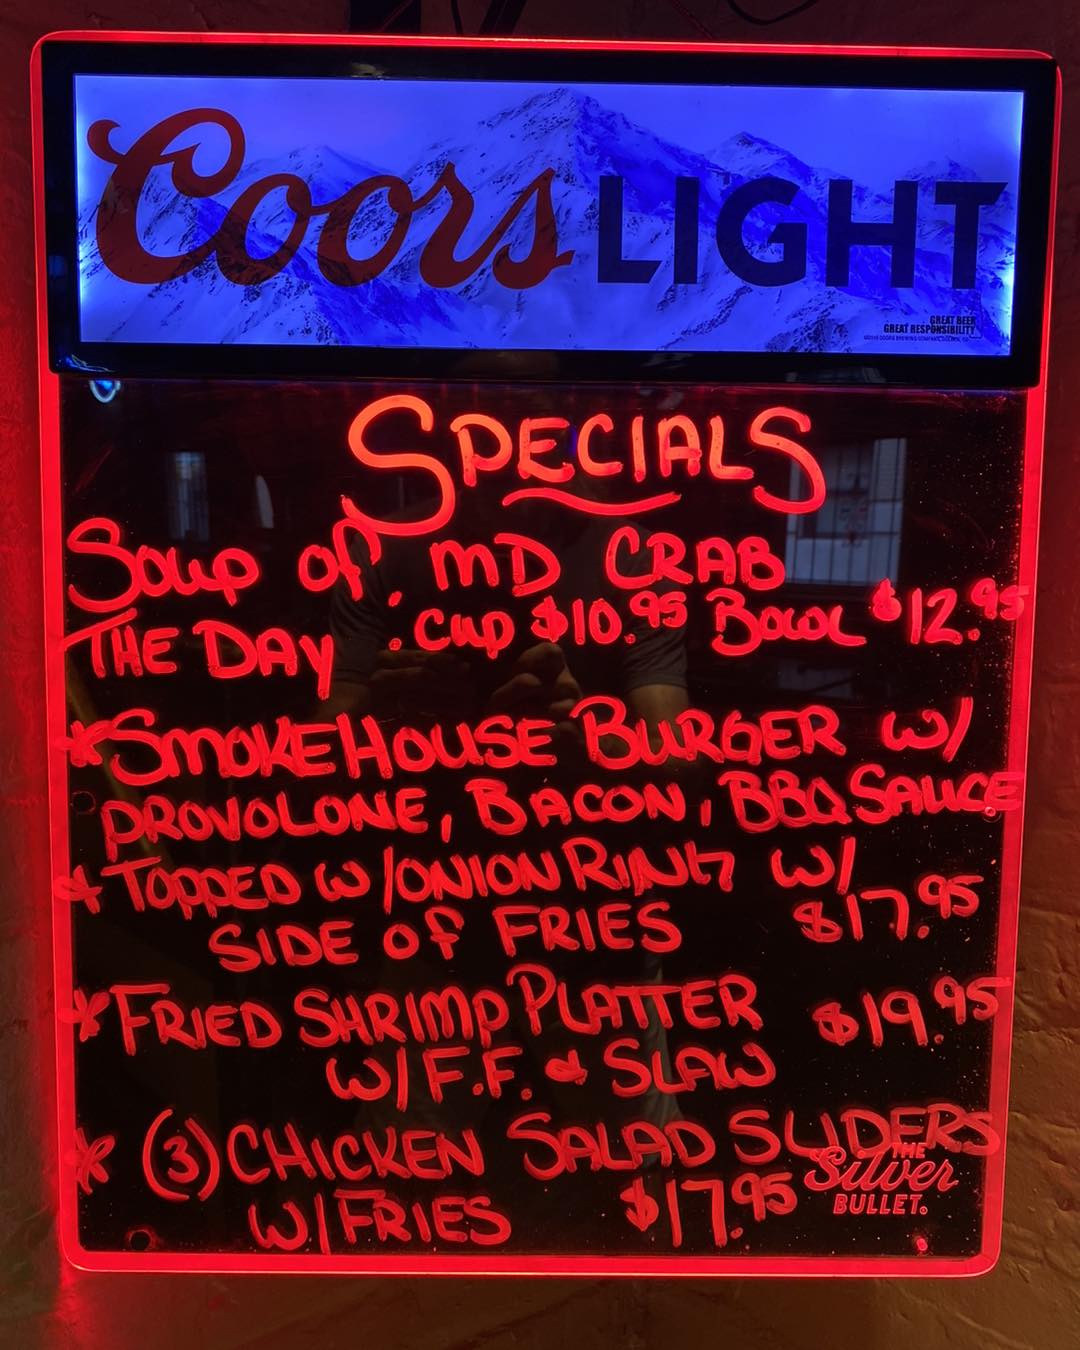 Coors LIGHT
GREAT BEER
GREAT RESPONSIBILITY
SPECIALS
Soup of : MD CRAB
THE DAY . Cup $10.95 Bowl $12.95
*SMOKEHOUSE BURGER W/
PROVOLONE, BACON, BBQ SAUCE
* TOPPED W/ONION RING W/
SIDE OF FRIES $17.95
*FRIED SHRIMP PLATTER $19.95
W/ F.F. & SLAW
* (3) CHICKEN SALAD SLIDERS
W/FRIES $17.95
THE
Silver
BULLET.